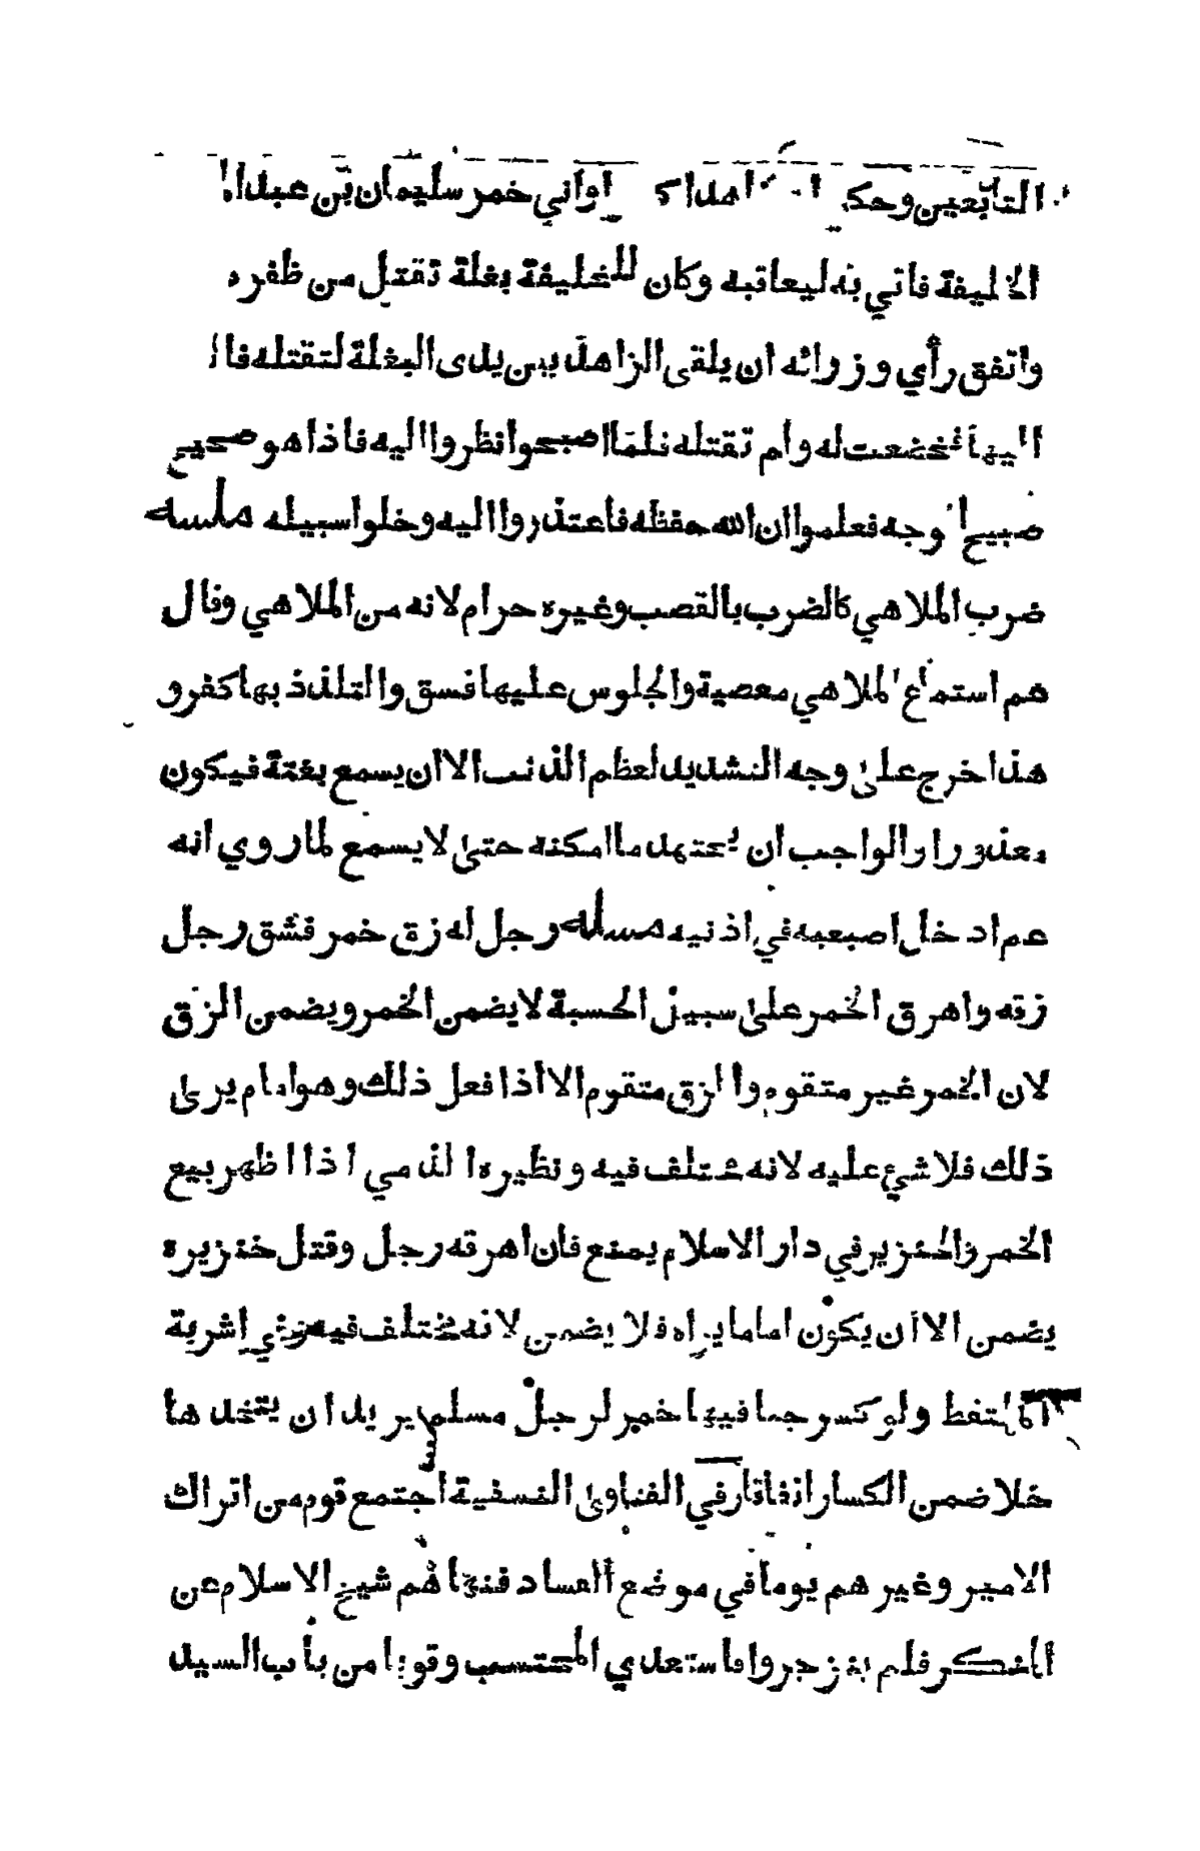 التابعين وحكي ان زاهدا كسر اواني خمر سليمان بن عبدال
الخليفة فاتي به ليعاقبه وكان للخليفة بغلة تقتل من ظفره
واتفق رأي وزرائه ان يلقى الزاهد بين يدى البغلة لتقتله فال
اليها فخضعت له ولم تقتله فلما اصبحوا نظروا اليه فاذا هو صحيح
صبيح الوجه فعلموا ان الله حفظه فاعتذروا اليه وخلوا سبيله مسئله
ضرب الملاهي كالضرب بالقصب وغيره حرام لانه من الملاهي وقال
عم استماع الملاهي معصية والجلوس عليها فسق والتلذذ بها كفر و
هذا خرج على وجه التشديد لعظم الذنب الا ان يسمع بغتة فيكون
معذورا والواجب ان يجتهد ما امكنه حتى لا يسمع لما روي انه
عم ادخل اصبعيه في اذنيه مسئله رجل له زق خمر فشق رجل
زقه واهرق الخمر على سبيل الحسبة لا يضمن الخمر ويضمن الزق
لان الخمر غير متقوم والزق متقوم الا اذا فعل ذلك وهو امام يرى
ذلك فلا شئ عليه لانه مختلف فيه ونظيره الذمي اذا اظهر بيع
الخمر والخنزير في دار الاسلام يمنع فان اهرقه رجل وقتل خنزيره
يضمن الا ان يكون اماما يراه فلا يضمن لانه مختلف فيه وفي اشربة
الملتقط ولو كسر جبا فيها خمر لرجل مسلم يريد ان يتخذها
خلا ضمن الكاسر اتفاقا وفي الفتاوى النسفية اجتمع قوم من اتراك
الامير وغيرهم يوما في موضع الفساد فنهاهم شيخ الاسلام عن
المنكر فلم ينزجروا فاستعدي المحتسب وقوما من باب السيد